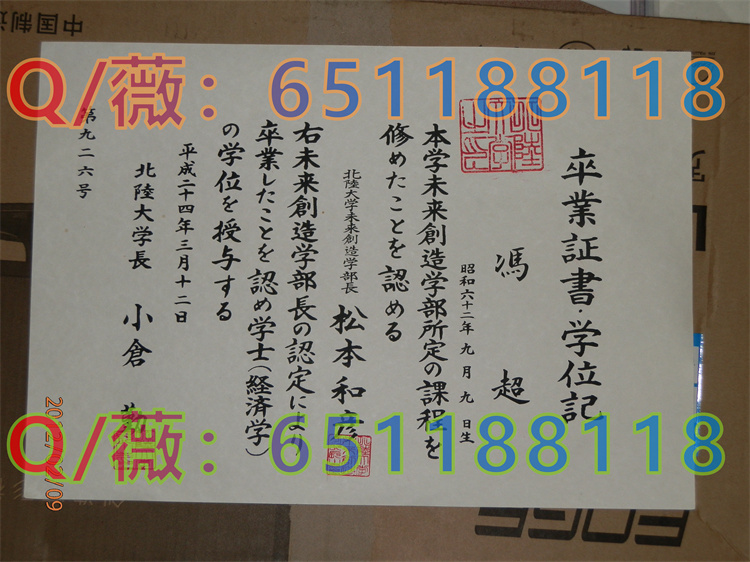 中国制造
Q/薇：651188118
卒業証書・学位記
馮 超
昭和六十二年 九 月 九 日生
本学未来創造学部所定の課程を
修めたことを認める
北陸大学未来創造学部長
松本和彦
右未来創造学部長の認定により
卒業したことを認め学士(経済学)
の学位を授与する
平成二十四年三月十二日
北陸大学長 小倉
第九二六号
Q/薇：651188118